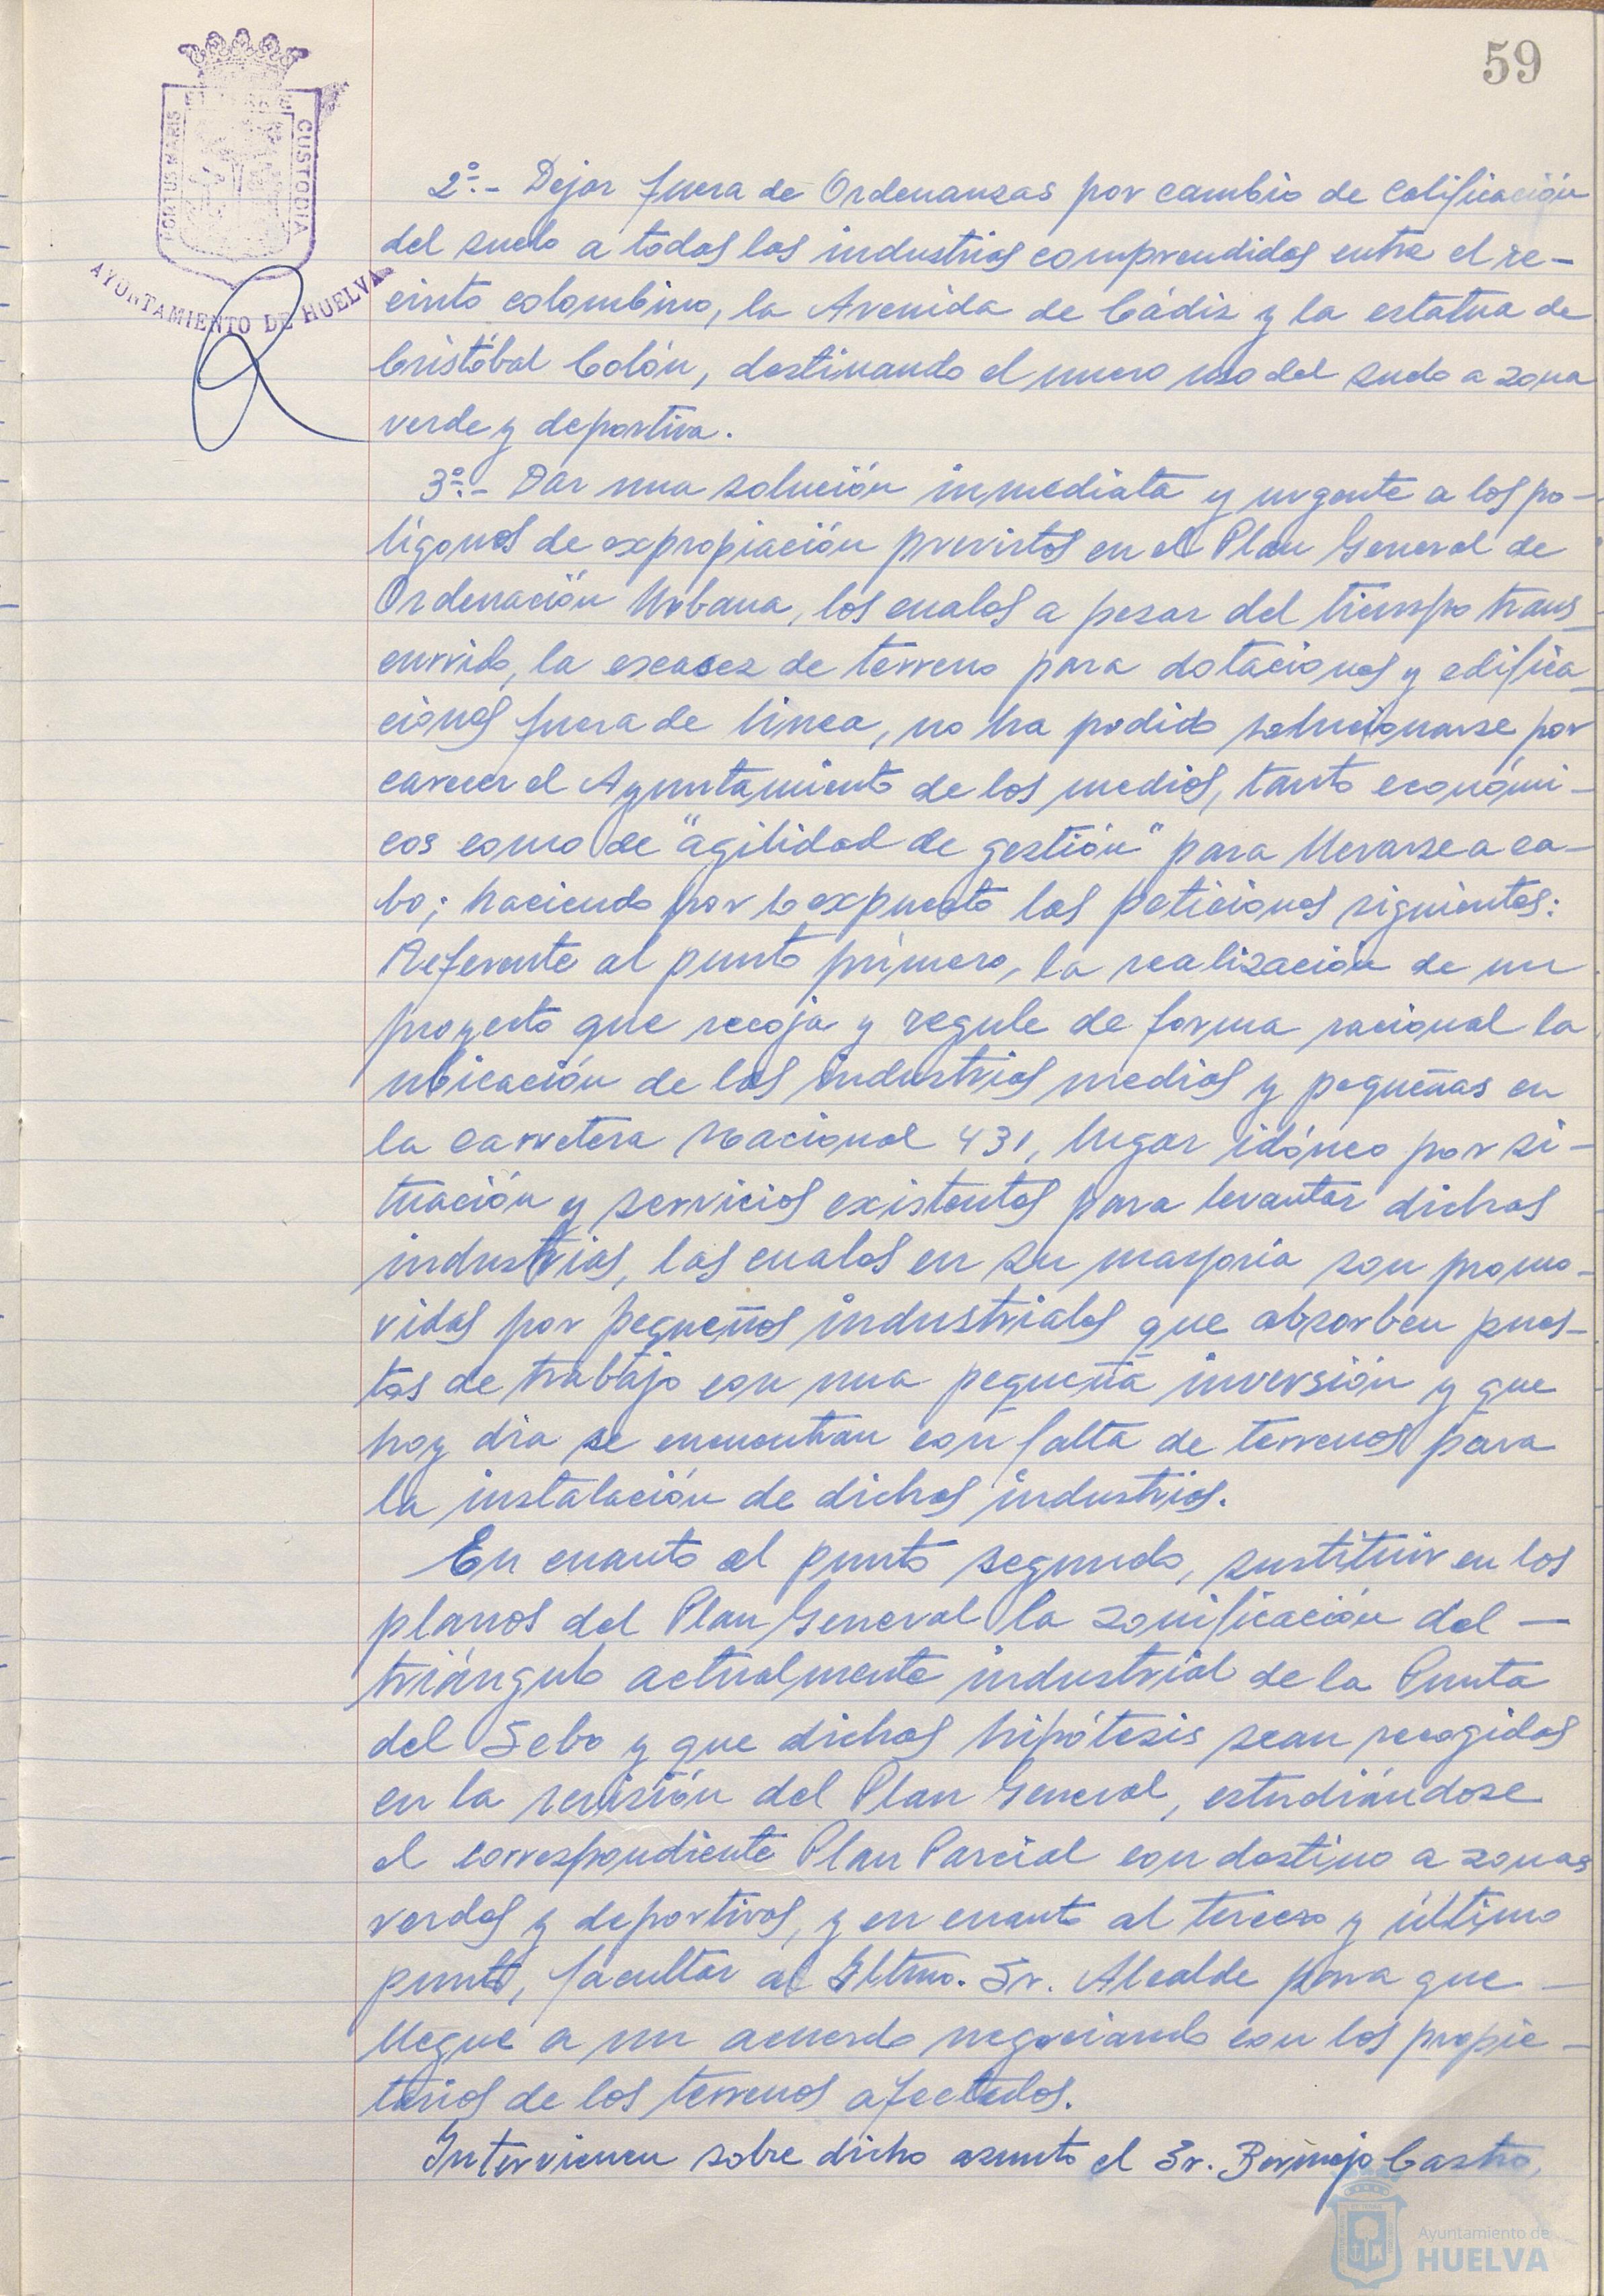 59
PORTUS MARIS
ET TERRAE
CUSTODIA
AYUNTAMIENTO DE HUELVA
2º.- Dejar fuera de Ordenanzas por cambio de calificación
del suelo a todas las industrias comprendidas entre el re-
cinto colombino, la Avenida de Cádiz y la estatua de
Cristóbal Colón, destinando el nuevo uso del suelo a zona
verde y deportiva.
3º.- Dar una solución inmediata y urgente a los po-
lígonos de expropiación previstos en el Plan General de
Ordenación Urbana, los cuales a pesar del tiempo trans-
currido, la escasez de terreno para dotaciones y edifica-
ciones fuera de línea, no ha podido solucionarse por
carecer el Ayuntamiento de los medios, tanto económi-
cos como de "agilidad de gestión" para llevarse a ca-
bo; haciendo por lo expuesto las peticiones siguientes:
Referente al punto primero, la realización de un
proyecto que recoja y regule de forma racional la
ubicación de las industrias medias y pequeñas en
la carretera Nacional 431, lugar idóneo por si-
tuación y servicios existentes para levantar dichas
industrias, las cuales en su mayoria son promo-
vidas por pequeños industriales que absorben pues-
tos de trabajo con una pequeña inversión y que
hoy dia se encuentran con falta de terrenos para
la instalación de dichas industrias.
En cuanto al punto segundo, sustituir en los
planos del Plan General la zonificación del -
triángulo actualmente industrial de la Punta
del Sebo y que dichas hipótesis sean recogidas
en la revisión del Plan General, estudiándose
el correspondiente Plan Parcial con destino a zonas
verdes y deportivas, y en cuanto al tercero y último
punto, facultar al Iltmo. Sr. Alcalde para que -
llegue a un acuerdo negociando con los propie-
tarios de los terrenos afectados.
Intervienen sobre dicho asunto el Sr. Bermejo Castro,
Ayuntamiento de
HUELVA